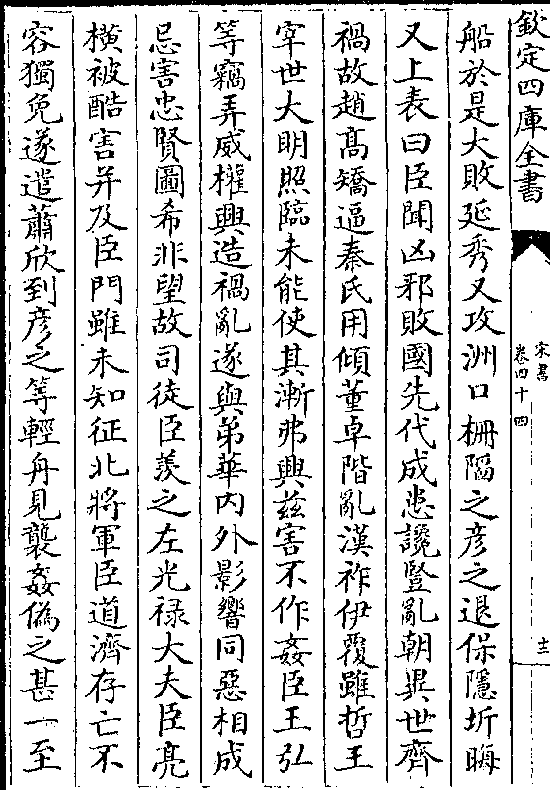 欽定四庫全書
宋書
卷四十四
船於是大敗延秀又攻洲口柵陷之彦之退保隱圻晦
又上表曰臣聞凶邪敗國先代成患讒豎亂朝異世齊
禍故趙髙矯逼秦氏用傾董卓階亂漢祚伊覆雖哲王
宰世大明照臨未能使其漸弗興兹害不作姦臣王弘
等竊弄威權興造禍亂遂與弟華内外影響同惡相成
忌害忠賢圖希非望故司徒臣羨之左光禄大夫臣亮
横被酷害并及臣門雖未知征北將軍臣道濟存亡不
容獨免遂遣蕭欣到彦之等輕舟見襲姦偽之甚一至